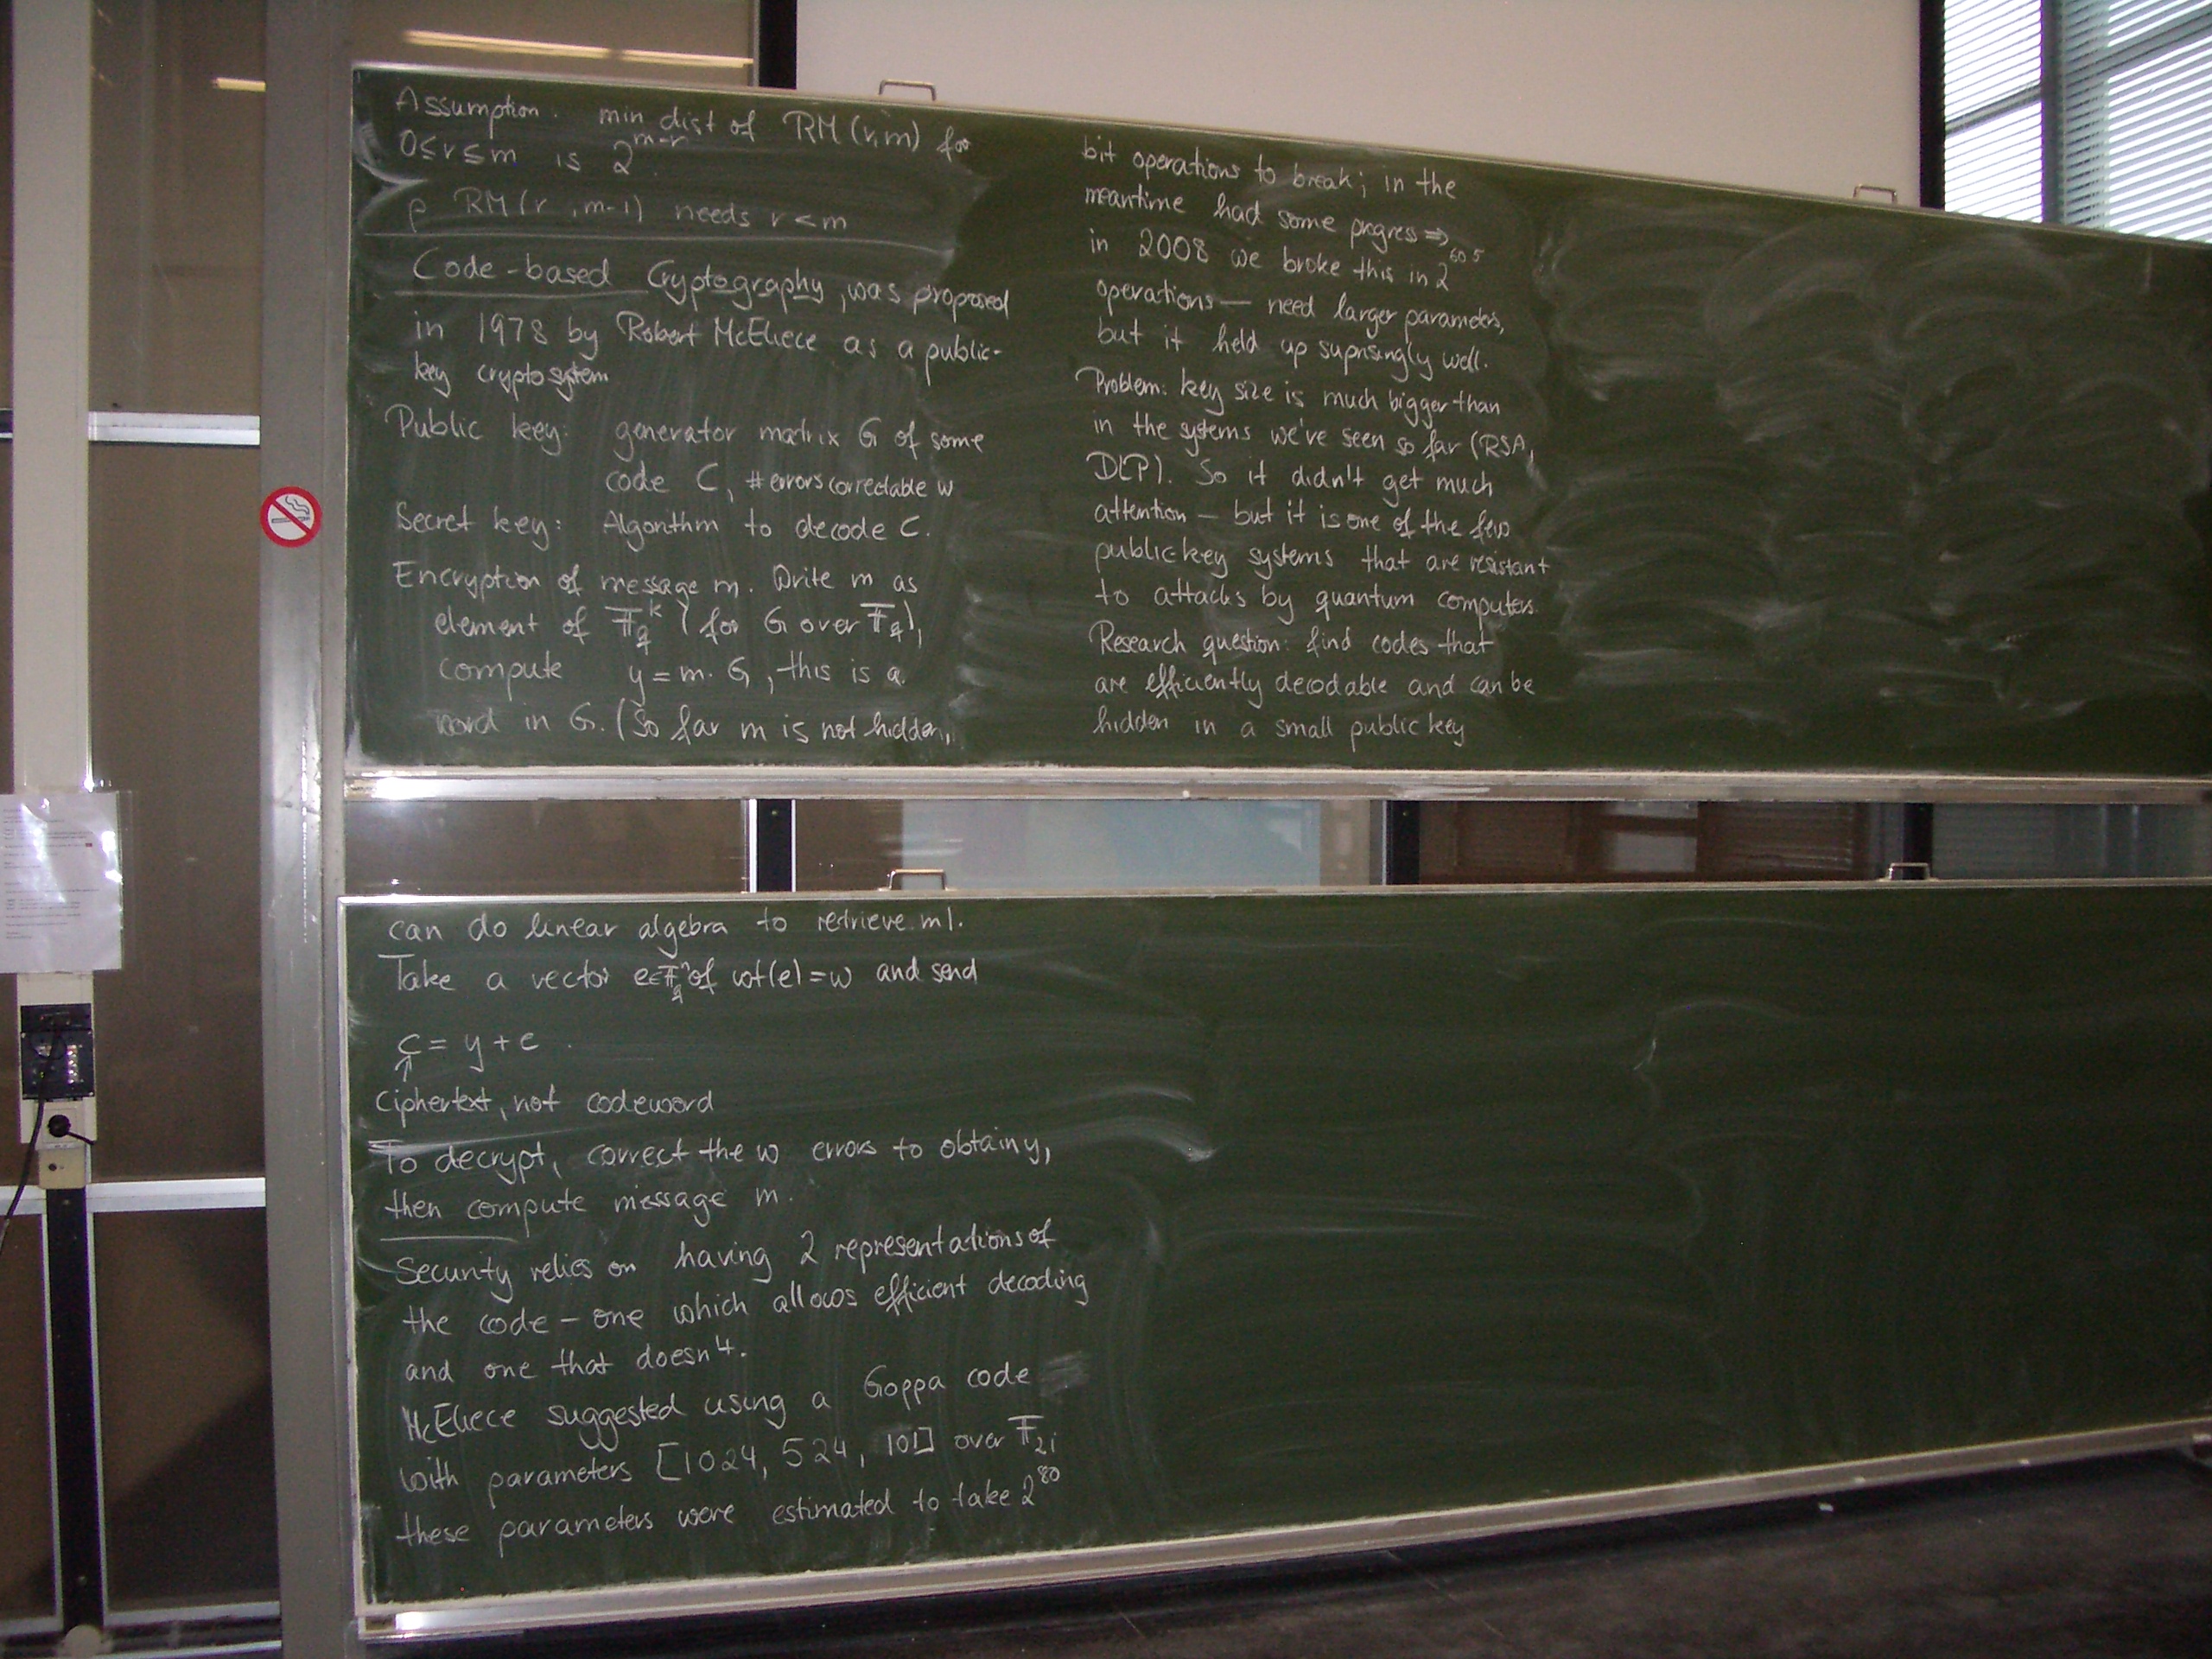 Assumption. min dist of RM(r,m) for
0≤r≤m is 2^{m-r}.
RM(r ,m-1) needs r<m
Code-based Cryptography, was proposed
in 1978 by Robert McEliece as a public-
key cryptosystem
Public key: generator matrix G of some
code C, #errors correctable w
Secret key: Algorithm to decode C.
Encryption of message m. Write m as
element of 𝔽_q^k (for G over 𝔽_q),
compute y=m·G, this is a
word in G. (So far m is not hidden,
can do linear algebra to retrieve m).
Take a vector e∈𝔽_q^n of wt(e)=w and send
c = y + e.
↑
Ciphertext, not codeword
To decrypt, correct the w errors to obtain y,
then compute message m.
Security relies on having 2 representations of
the code – one which allows efficient decoding
and one that doesn't.
McEliece suggested using a Goppa code
with parameters [1024, 524, 101] over 𝔽_2;
these parameters were estimated to take 2^80
bit operations to break; in the
meantime had some progress ⇒
in 2008 we broke this in 2^{60.5}
operations — need larger parameters,
but it held up suprisingly well.
Problem: key size is much bigger than
in the systems we've seen so far (RSA,
DLP). So it didn't get much
attention – but it is one of the few
public-key systems that are resistant
to attacks by quantum computers.
Research question: find codes that
are efficiently decodable and can be
hidden in a small public key